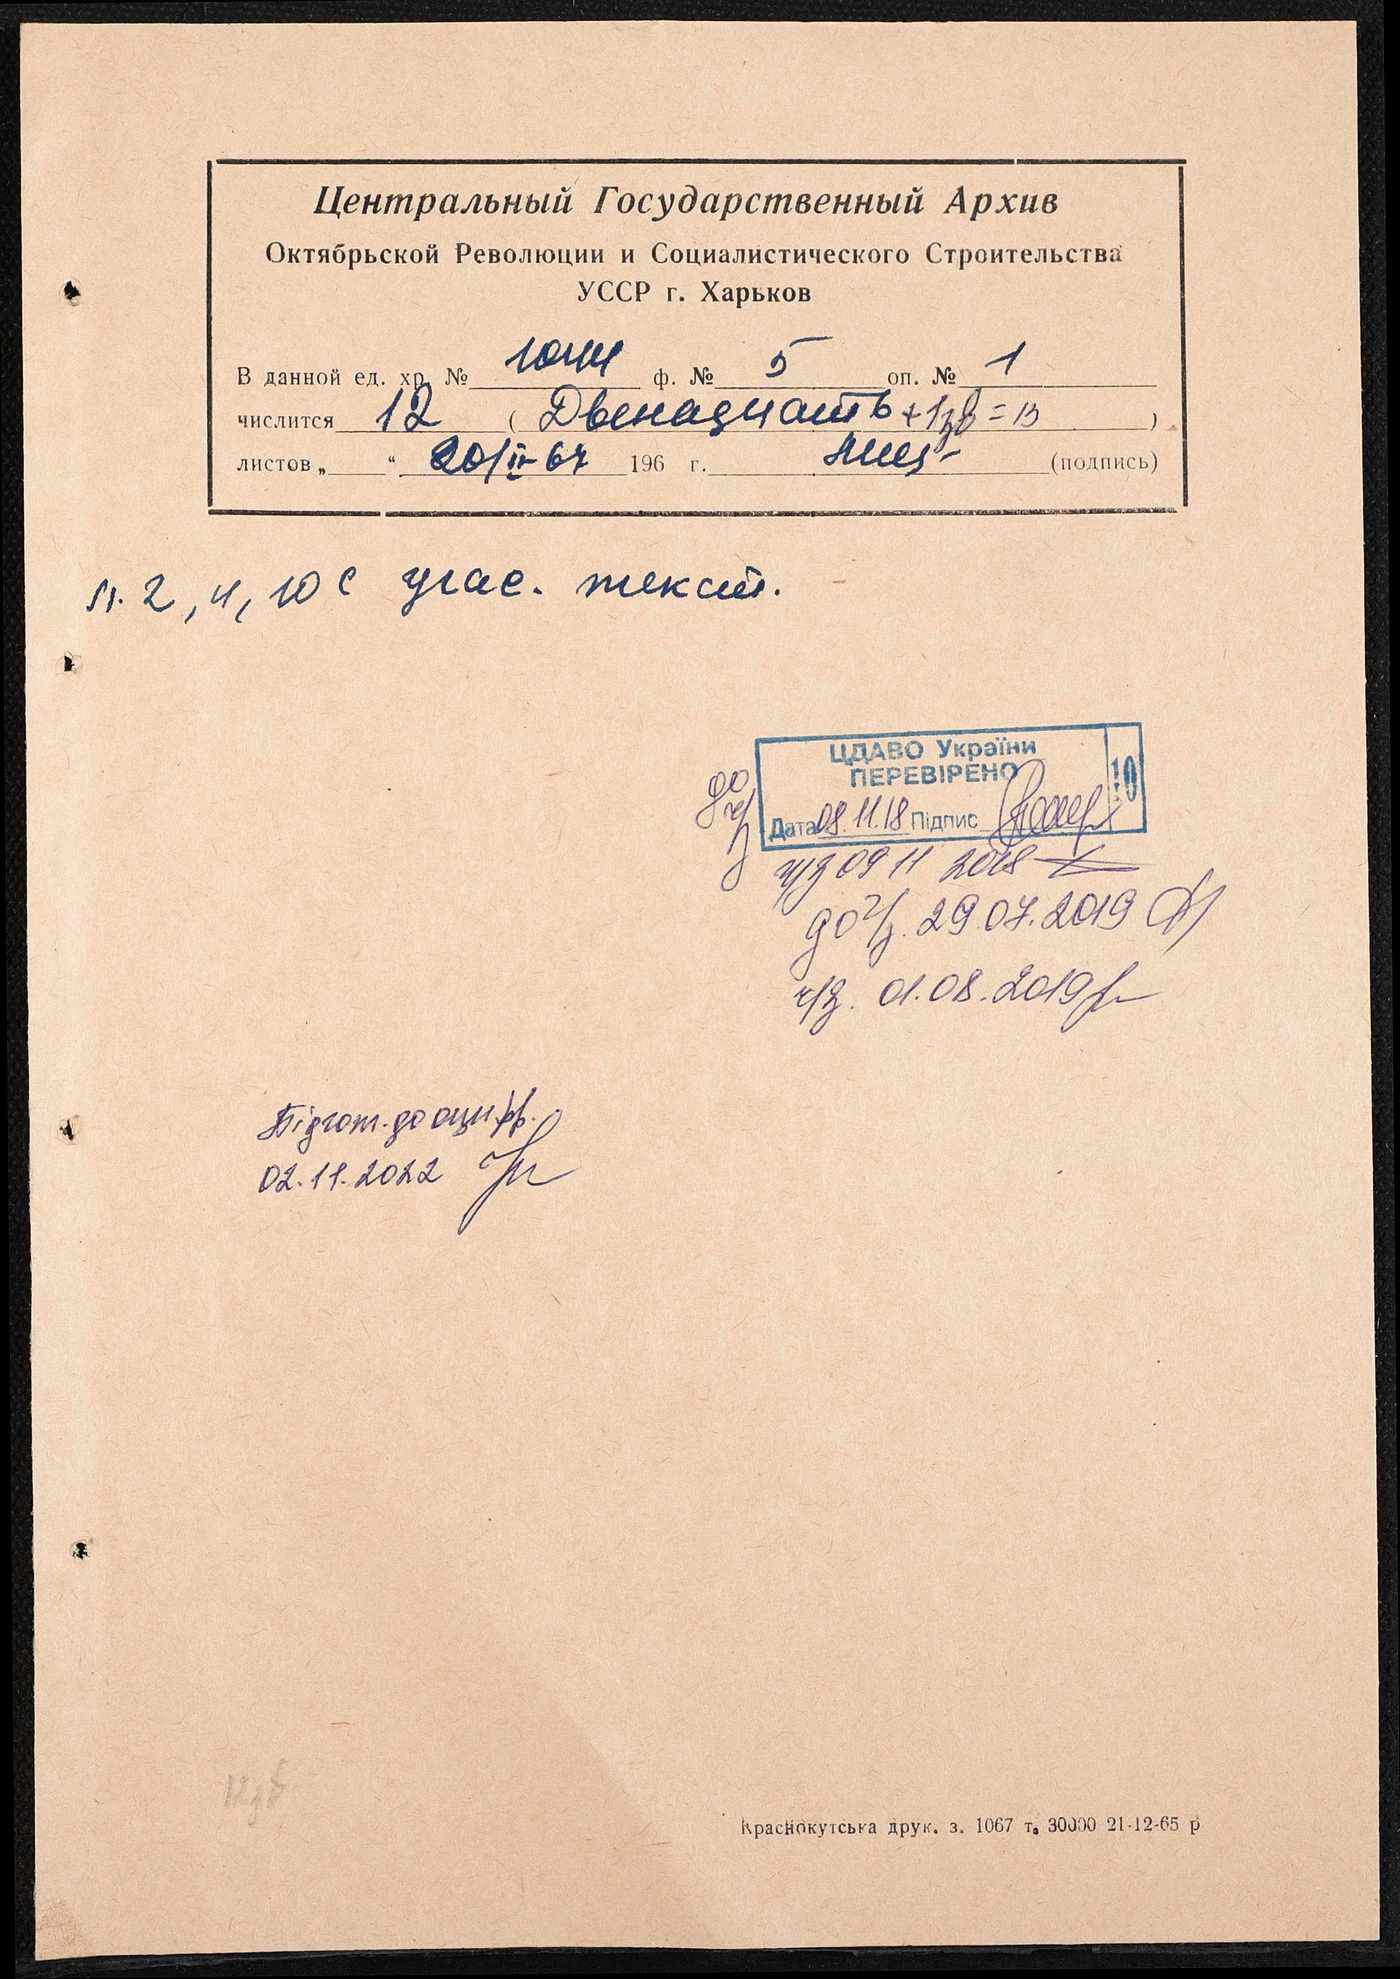 Центральный Государственный Архив
Октябрьской Революции и Социалистического Строительства
УССР г. Харьков
В данной ед. хр. № ф. № 5 оп. № 1
числится 12 ( Двенадцать + 1 зв = 13 )
листов „ “ 20/IV-67 196 г. (подпись)
л. 2, 4, 10 с угас. текст.
ЦДАВО України
ПЕРЕВІРЕНО
10
до ч/з
Дата 08.11.18 Підпис
ч/з 09 11 2018
до ч/з. 29.07.2019
ч/з. 01.08.2019
Підгот. до оцифр.
02.11.2022
Краснокутська друк. з. 1067 т. 30000 21-12-65 р